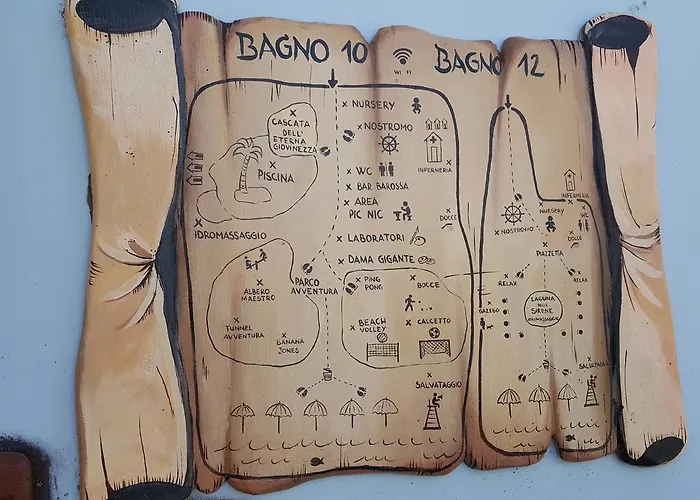 BAGNO 10
WI FI
BAGNO 12
NURSERY
NOSTROMO
INFERMERIA
CASCATA
DELL'
ETERNA
GIOVINEZZA
PISCINA
WC
BAR BAROSSA
AREA
PIC NIC
DOCCE
IDROMASSAGGIO
LABORATORI
DAMA GIGANTE
PARCO
AVVENTURA
ALBERO
MAESTRO
TUNNEL
AVVENTURA
BANANA
JONES
PING
PONG
BOCCE
BEACH
VOLLEY
CALCETTO
SALVATAGGIO
INFERMERIA
NURSERY
WC
NOSTROMO
DOCCE
PIAZZETTA
RELAX
RELAX
GAZEBO
LAGUNA
DELLE
SIRENE
IDROMASSAGGIO
SALVATAGGIO